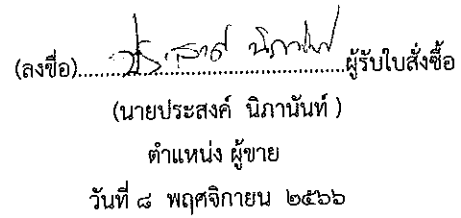 (ลงชื่อ)....................................................ผู้รับใบสั่งซื้อ
(นายประสงค์ นิภานันท์ )
ตำแหน่ง ผู้ขาย
วันที่ ๘ พฤศจิกายน ๒๕๖๖